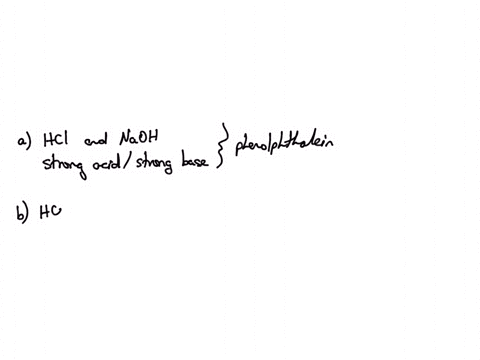 a) HCl and NaOH
strong acid/strong base } phenolphthalein
b) HC